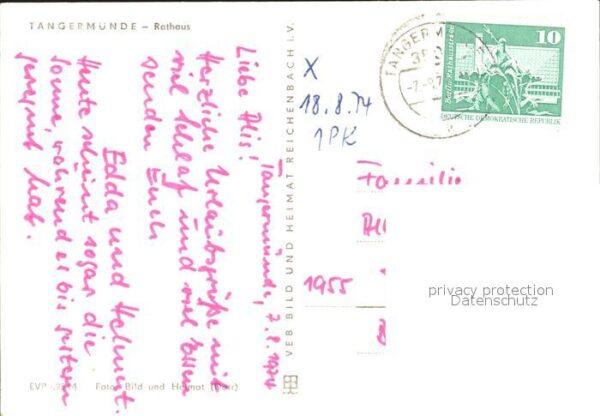 TANGERMÜNDE – Rathaus
Tangermünde, 7.8.1974
Liebe Alis!
Herzliche Urlaubsgrüße mit
viel Schlaf und viel Essen
senden Euch
Edda und Helmut.
Heute scheint sogar die
Sonne, während es bis gestern
geregnet hat.
EVP
Foto: Bild und Heimat
VEB BILD UND HEIMAT REICHENBACH I.V.
X
18.8.74
1PK
TANGERM
10
Berlin, Rathausstraße
DEUTSCHE DEMOKRATISCHE REPUBLIK
Familie
1955
privacy protection
Datenschutz